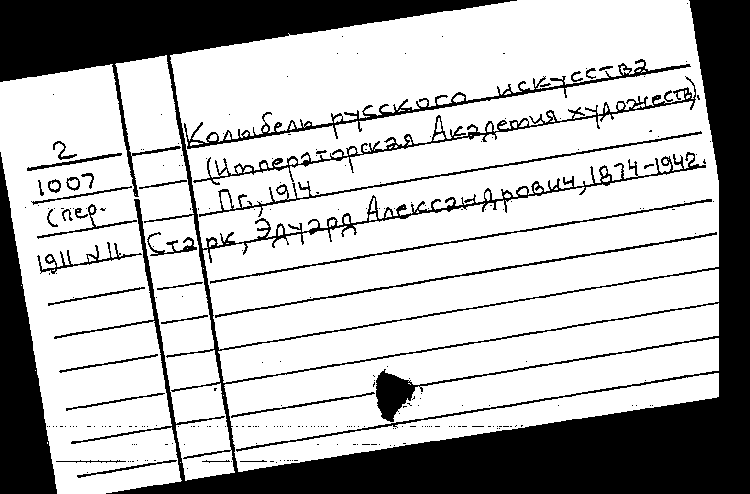 Колыбель русского искусства
2 (Императорская Академия художеств).
1007 Пг., 1914.
(пер.
1911 №11. Старк, Эдуард Александрович, 1874-1942.